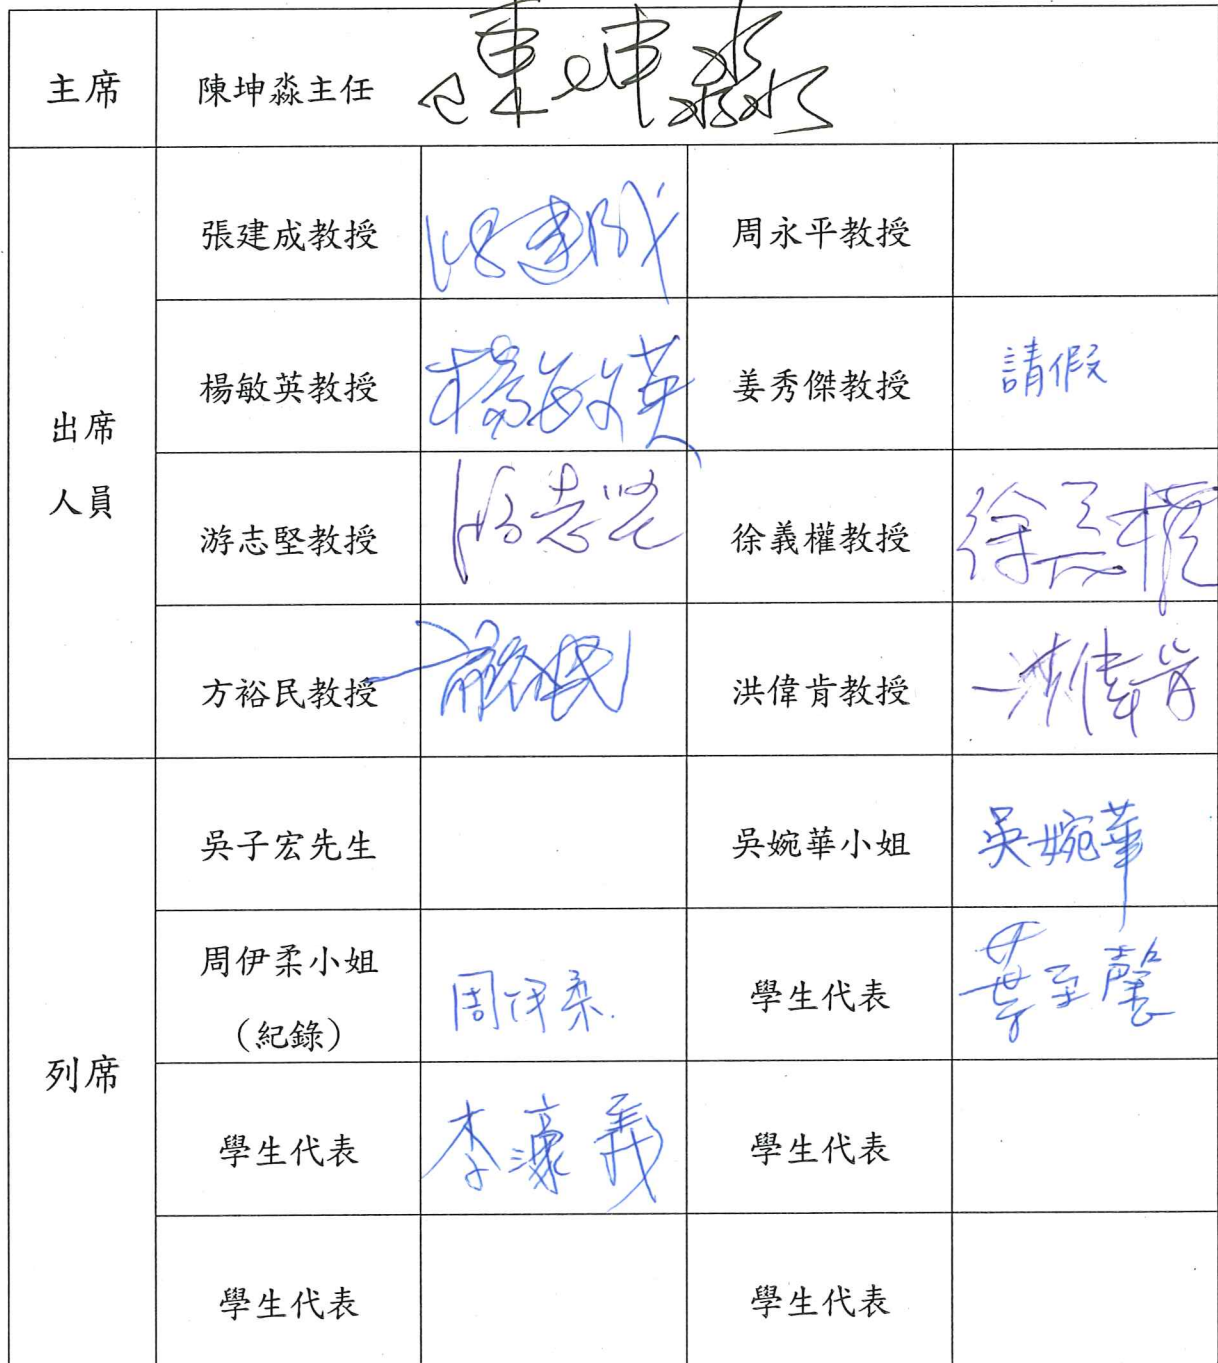 主席
陳坤淼主任
陳坤淼
出席
人員
張建成教授
張建成
周永平教授
楊敏英教授
楊敏英
姜秀傑教授
請假
游志堅教授
游志堅
徐義權教授
徐義權
方裕民教授
方裕民
洪偉肯教授
洪偉肯
列席
吳子宏先生
吳婉華小姐
吳婉華
周伊柔小姐
（紀錄）
周伊柔
學生代表
葉至馨
學生代表
李濠義
學生代表
學生代表
學生代表